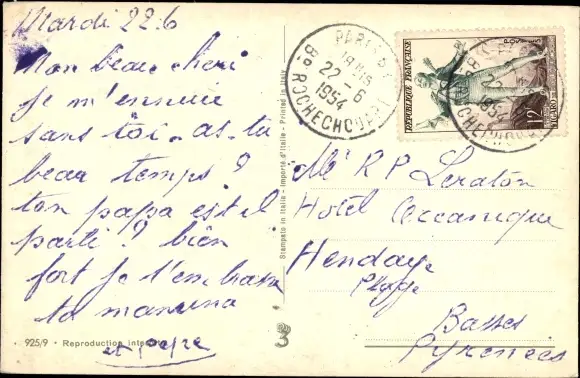 Mardi 22.6
Mon beau chéri
je m'ennuie
sans toi. as-tu
beau temps ?
ton papa est il
parti ? bien
fort je t'embrasse
ta mamma
et pépé
925/9 • Reproduction inter
Stampato in Italia - Importé d'Italie - Printed in Italy
3
PARIS
18H15
22 - 6
1954
Bd ROCHECHOUART
REPUBLIQUE FRANÇAISE
POSTES
12F
FIGARO
22
1954
Mr R P Leraton
Hotel Occeanique
Hendaye
Plage
Basses
Pyrenées